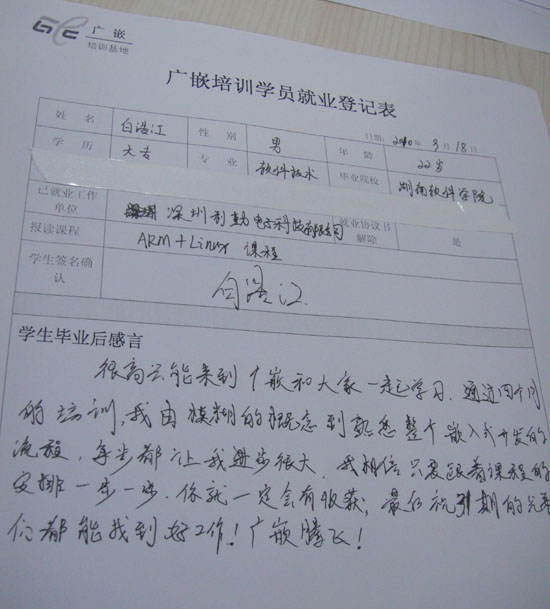 GEC 广嵌
培训基地
广嵌培训学员就业登记表
日期: 2010年 3月 18日
姓名 白浩江 性别 男 年龄 22岁
学历 大专 专业 软件技术 毕业院校 湖南软件学院
已就业工作单位 深圳 电子科技有限公司 就业协议书解除 是
报读课程 ARM+Linux 课程
学生签名确认 白浩江
学生毕业后感言
很高兴能来到广嵌和大家一起学习. 通过四个月
的培训,我由模糊的概念到熟悉整个嵌入式开发的
流程, 每步都让我进步很大. 我相信只要跟着课程的
安排一步一步, 你就一定会有收获; 最后祝31期的兄弟
们都能找到好工作! 广嵌腾飞!